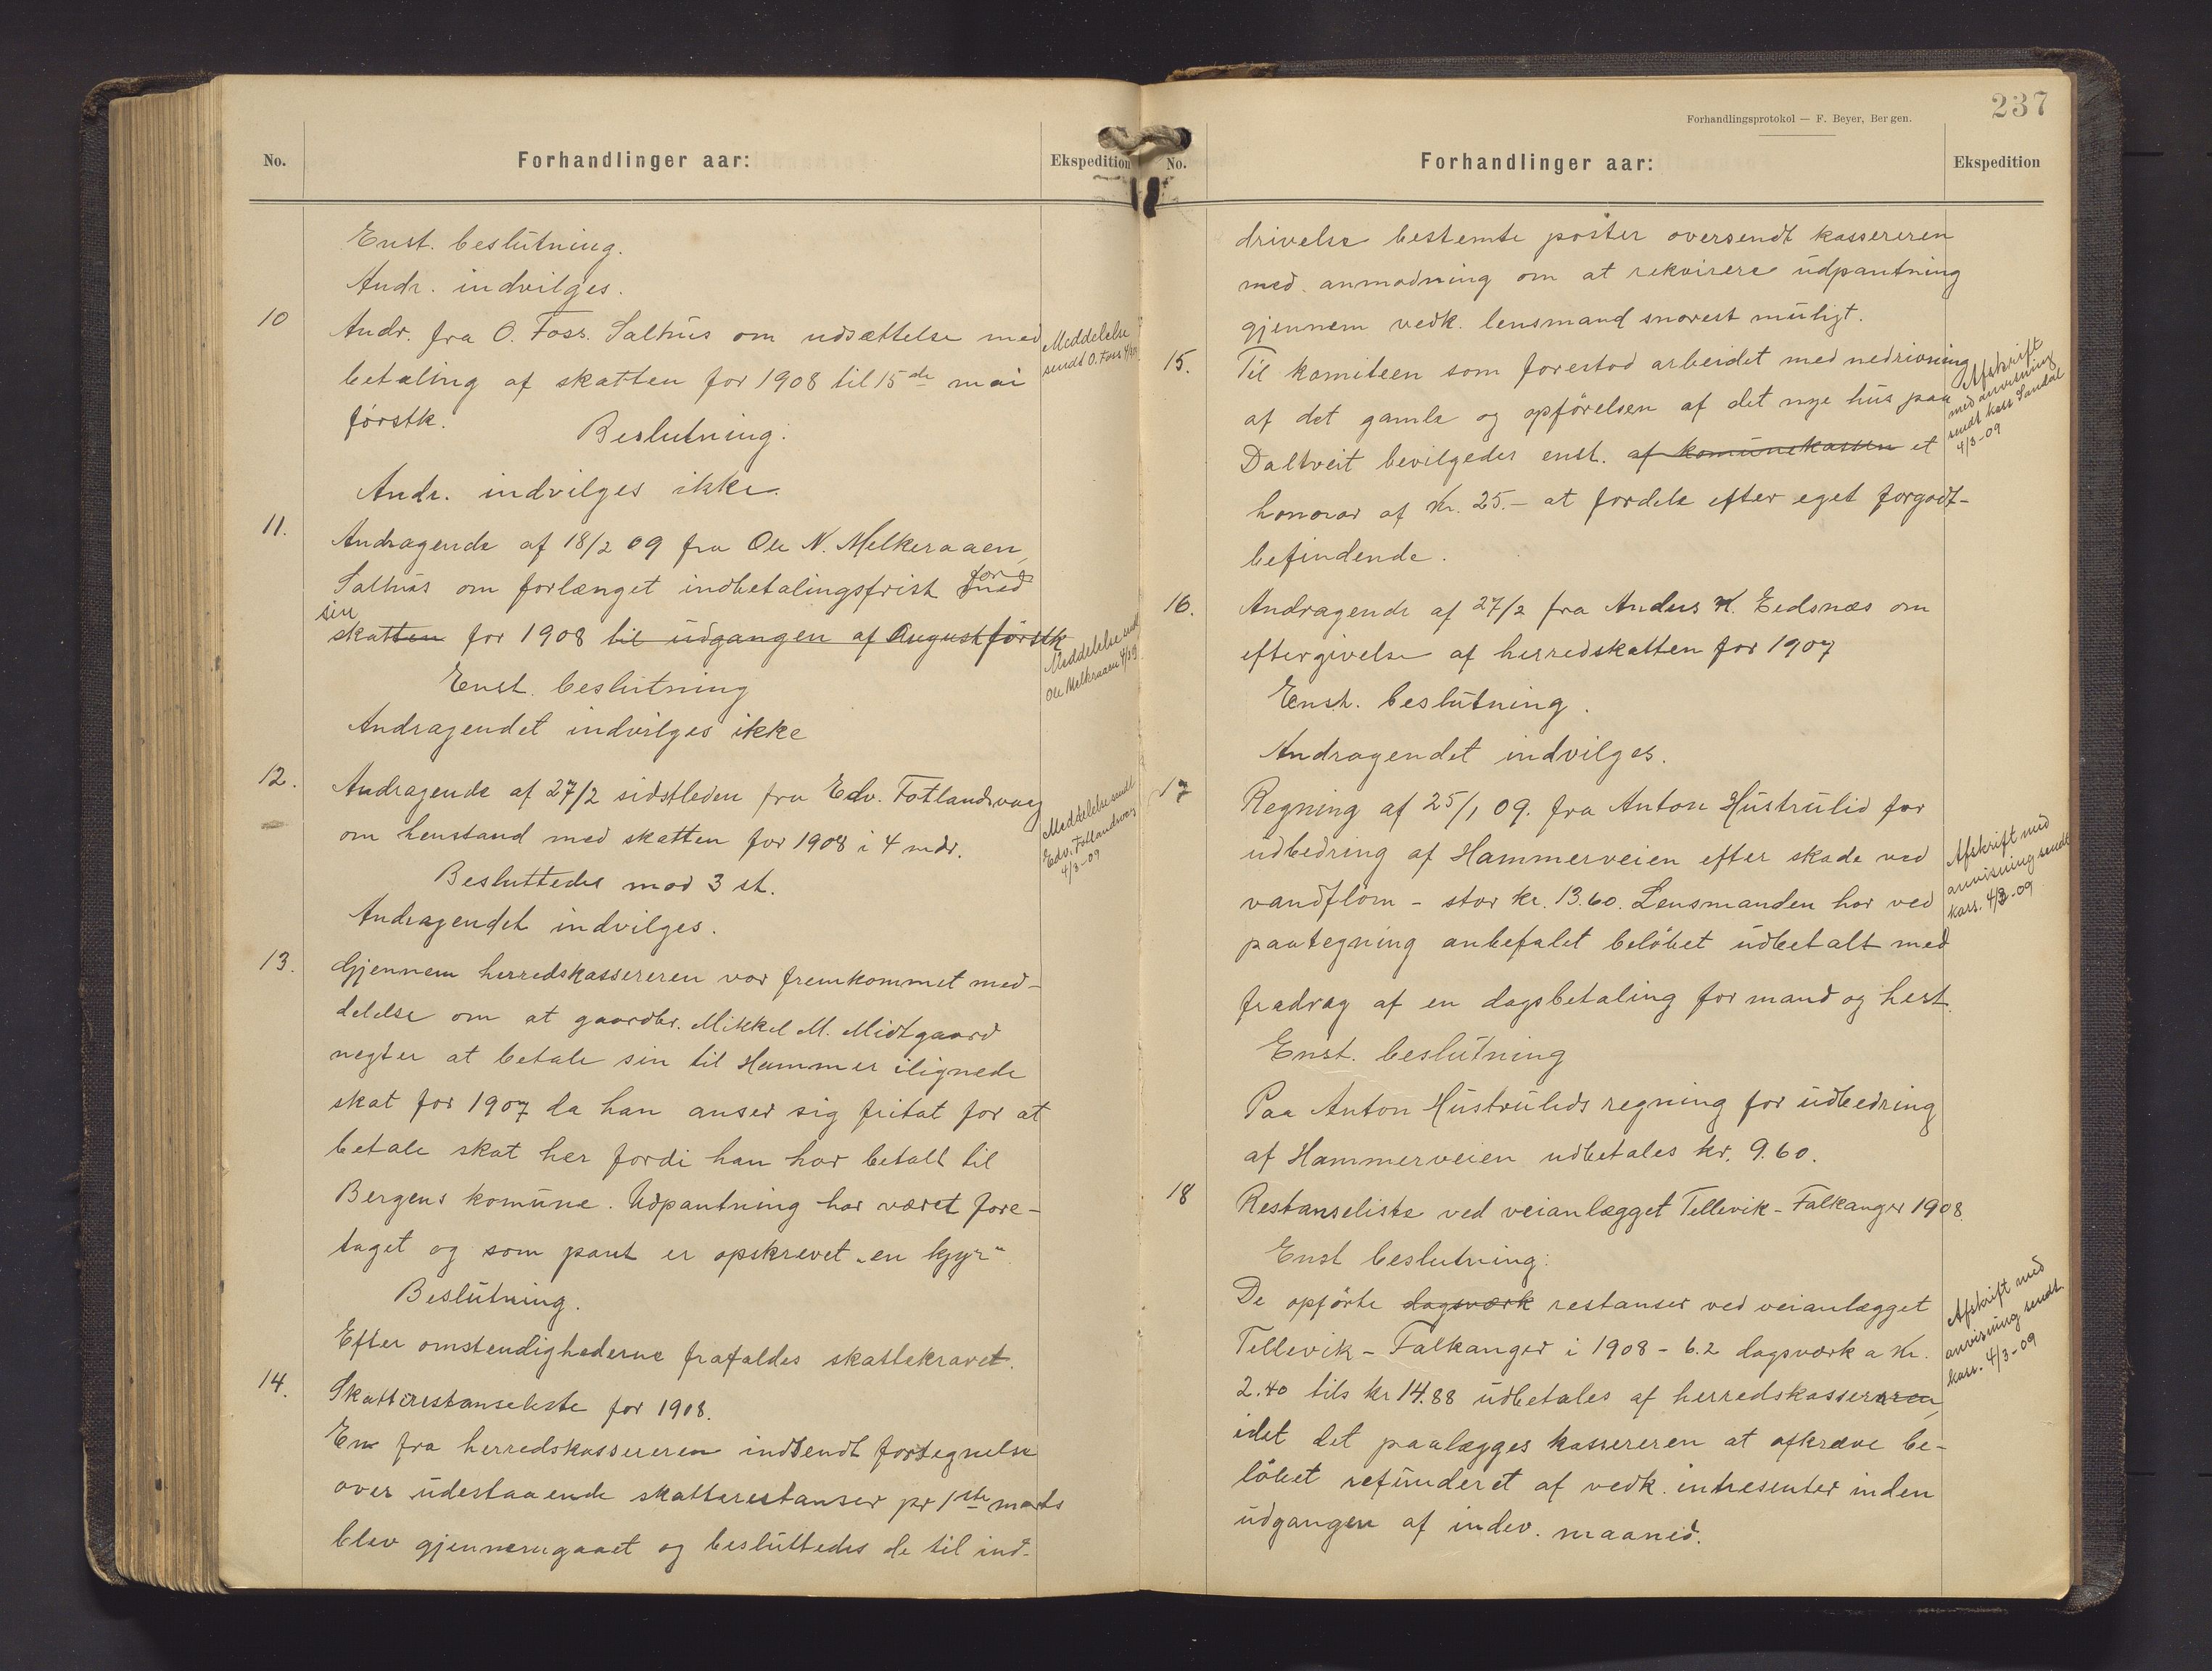 No. Forhandlinger aar: Ekspedition
Enst. beslutning.
Andr. indvilges.
10 Andr. fra O. Foss. Salhus om udsættelse med
betaling af skatten for 1908 til 15de mai
førstk.
Beslutning.
Andr. indvilges ikke.
Meddelelse
sendt O. Foss 4/3 09
11. Andragende af 18/2 09 fra Ole N. Melkeraaen,
Salhus om forlænget indbetalingsfrist med for
sin
skatten for 1908 til udgangen af August førstk
Enst. beslutning
Andragendet indvilges ikke
Meddelelse sendt
Ole Melkraaen 4/3 09
12. Andragende af 27/2 sidstleden fra Edv. Totlandsvaag
om henstand med skatten for 1908 i 4 mdr.
Besluttedes mod 3 st.
Andragendet indvilges.
Meddelelse sendt
Edv. Totlandsvag
4/3-09
13. Gjennem herredskassereren var fremkommet med-
delelse om at gaardbr. Mikkel M. Midtgaard
negter at betale sin til Hammer ilignede
skat for 1907 da han anser sig fritat for at
betale skat her fordi han har betalt til
Bergens komune. Udpantning har været fore-
taget og som pant er opskrevet „en kyr“
Beslutning.
Efter omstendighederne frafaldes skattekravet.
14. Skatterestanseliste for 1908.
En fra herredskassereren indsendt fortegnelse
over udestaaende skatterestanser pr 1ste marts
blev gjennemgaaet og besluttedes de til ind-
237
Forhandlingsprotokol — F. Beyer, Bergen.
No. Forhandlinger aar: Ekspedition
drivelse bestemte poster oversendt kassereren
med anmodning om at rekvirere udpantning
gjennem vedk. lensmand snarest muligt.
15. Til komiteen som forestod arbeidet med nedrivning
af det gamle og opførelsen af det nye hus paa
Daltveit bevilgedes enst. af komunekassen et
honorar af Kr. 25.- at fordele efter eget forgodt-
befindende.
Afskrift
med anvisning
sendt kass Sandal
4/3-09
16. Andragende af 27/2 fra Anders K. Eedsnæs om
eftergivelse af herredskatten for 1907
Enst. beslutning.
Andragendet indvilges.
17 Regning af 25/1 09. fra Anton Hustrulid for
udbedring af Hammerveien efter skade ved
vandflom - stor kr. 13.60. Lensmanden har ved
paategning anbefalet beløbet udbetalt med
fradrag af en dagsbetaling for mand og hest.
Enst. beslutning
Paa Anton Hustrulids regning for udbedring
af Hammerveien udbetales kr. 9.60.
Afskrift med
anvisning sendt
kass. 4/3-09
18 Restanseliste ved veianlægget Tellevik - Falkanger 1908.
Enst beslutning:
De opførte dagsværk restanser ved veianlægget
Tellevik - Falkanger i 1908 - 6.2 dagsværk a Kr.
2.40 tils kr 14.88 udbetales af herredskassereren,
idet det paalægges kassereren at afkræve be-
løbet refunderet af vedk. intresenter inden
udgangen af indev. maaned.
Afskrift med
anvisning sendt
kass. 4/3-09